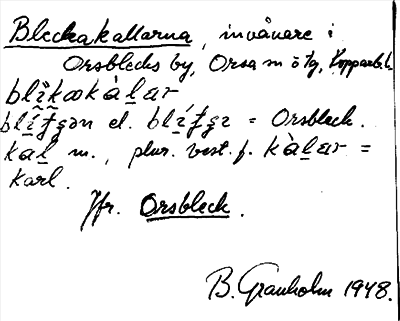 Bleckakallarna, invånare i
Orsblecks by, Orsa sn o tg, Kopparb. l.
kàḷar
el. = Orsbleck.
kaḷ m., plur. best. f. kàḷar =
karl.
Jfr. Orsbleck.
B. Granholm 1948.